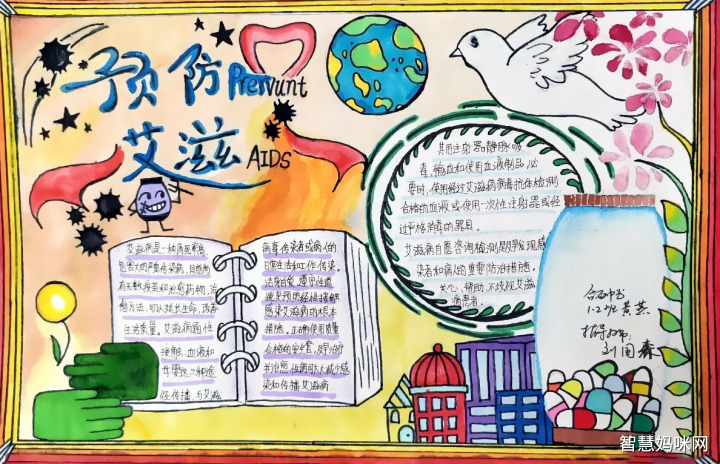 预防 Prevunt
艾滋 AIDS
艾滋病是一种病死率高
危害大的严重传染病,目前尚
有无数疫苗和治愈药物,治
愈方法,可以延长生命,改善
生活质量。艾滋病通过性
接触、血液和
母婴这三种途
径传播,与艾滋
病毒传染者或病人的
日常生活和工作传染。
洁身自爱、遵守性道
德是预防经性接触
感染艾滋病的根本
措施。正确使用质量
合格的安全套,及早治疗
并治愈性病可大大减少感
染和传播艾滋病
共用注射器静脉吸
毒,输血和使用血液制品,必
要时,使用经过艾滋病病毒抗体检测
合格的血液或使用一次性注射器或经
过严格消毒的器具
艾滋病自愿咨询检测是及早发现感
染者和病人的重要防治措施。
关心、帮助、不歧视艾滋
病患者。
1.2班
指导教师:
刘国森
智慧妈咪网